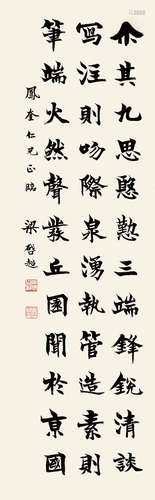 尒其九思慇懃三端鋒銳清談
寫注則吻際泉湧執管造素則
筆端火然聲發丘園聞於京國
鳳奎仁兄正臨 梁啟超